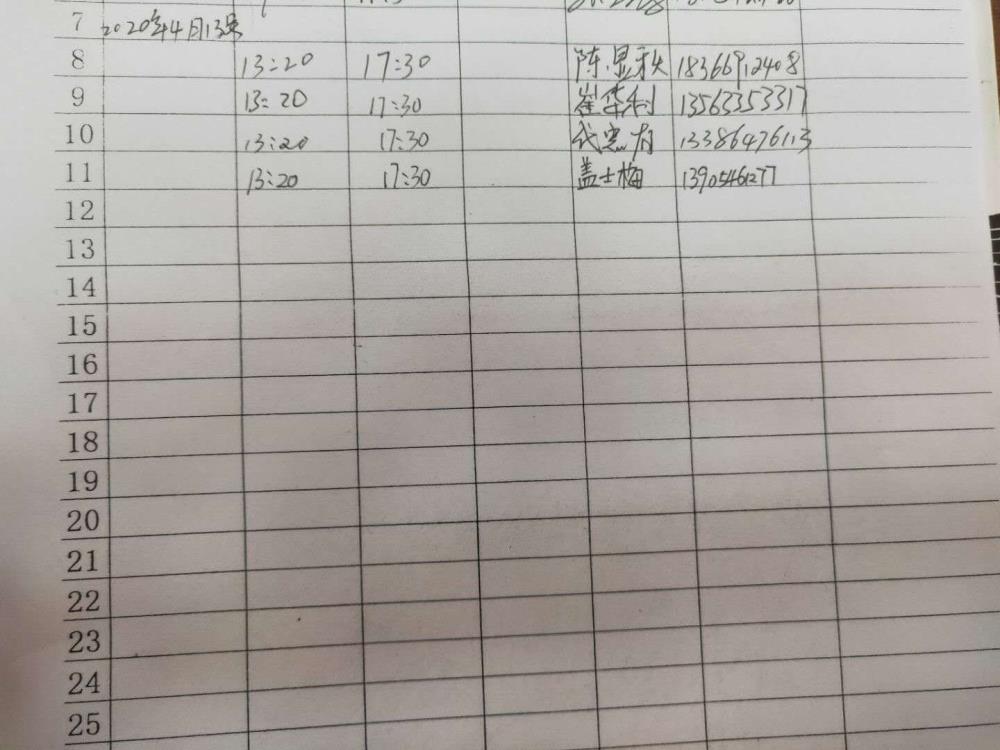 7 2020年4月13号
8 13:20 17:30 陈显秋 18366912408
9 13:20 17:30 崔华利 13563353317
10 13:20 17:30 代宪有 13386476113
11 13:20 17:30 盖士梅 13905461277
12
13
14
15
16
17
18
19
20
21
22
23
24
25